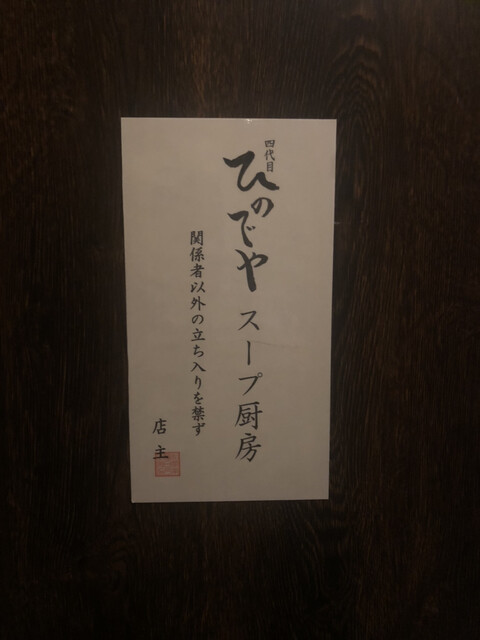 四代目
ひのでや スープ厨房
関係者以外の立ち入りを禁ず
店主